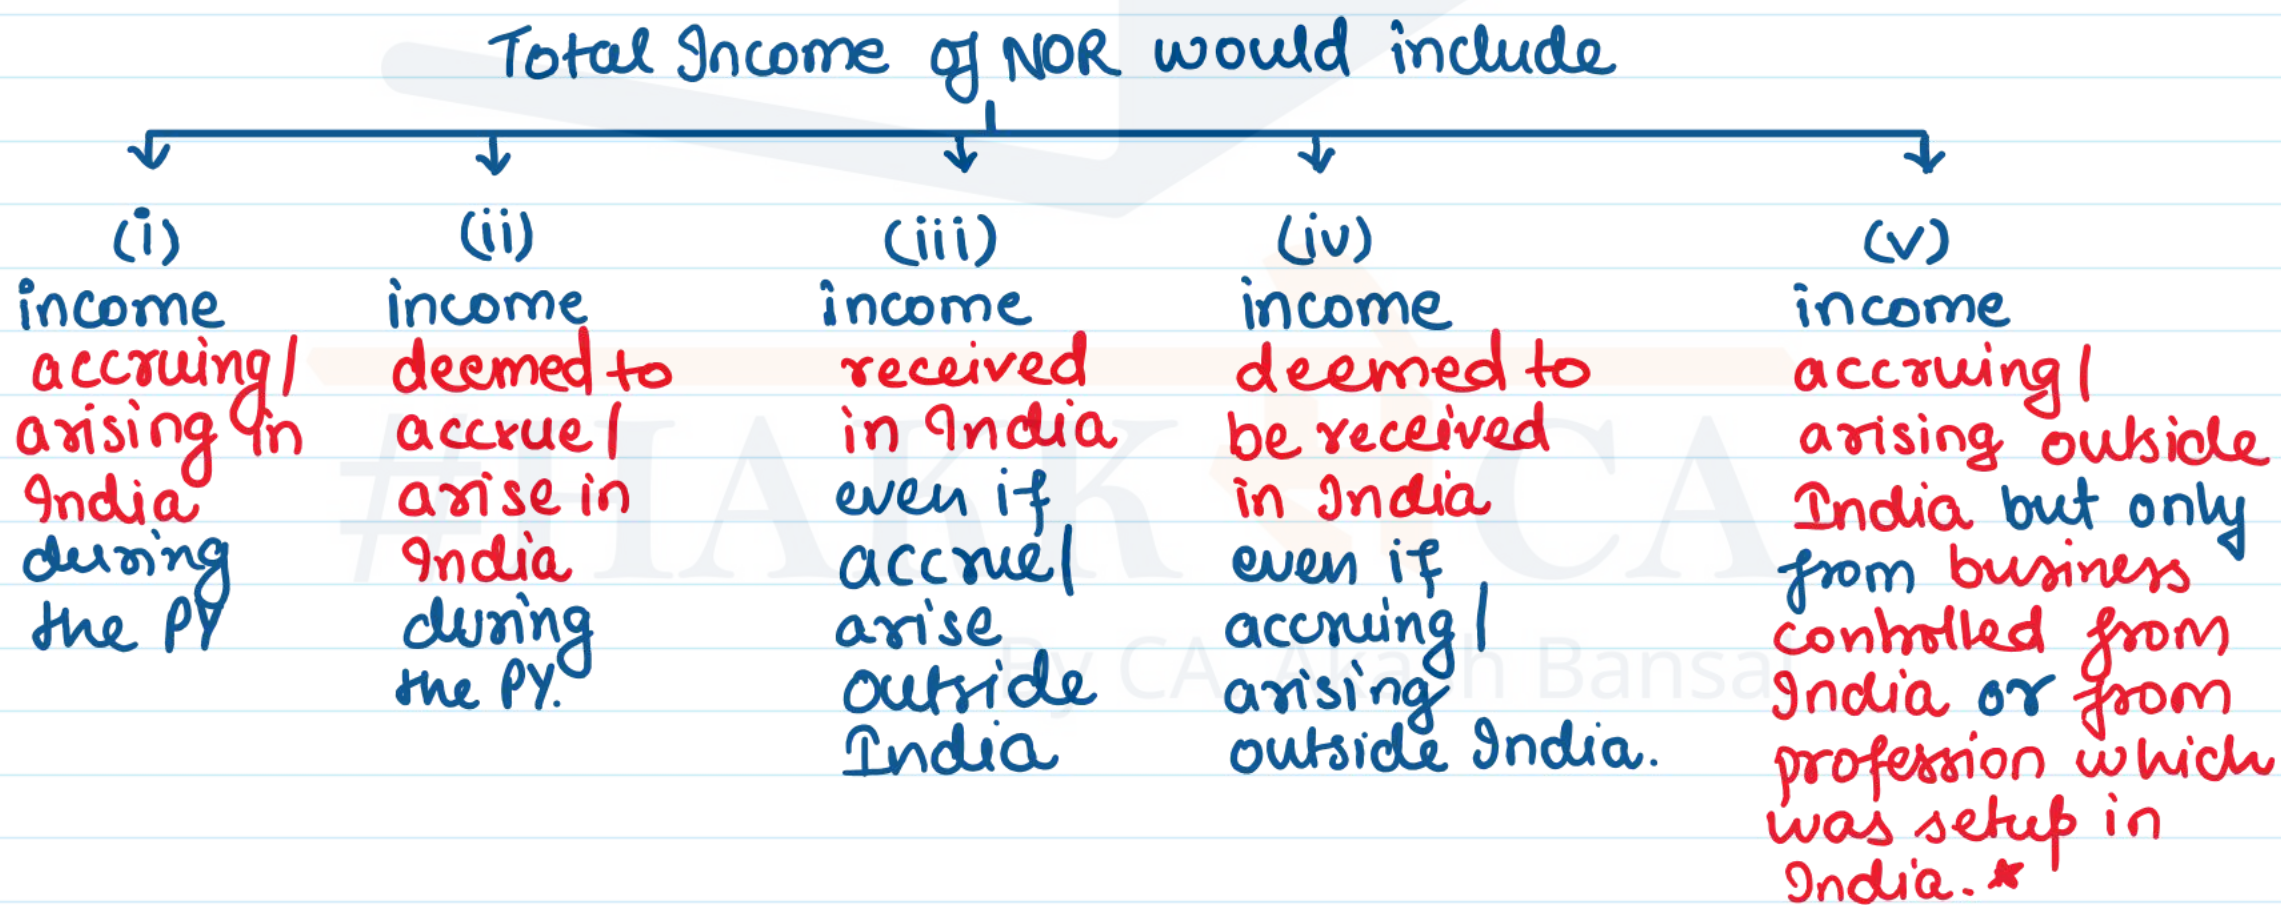 Total Income of NOR would include
(i)
income
accruing/
arising in
India
during
the PY
(ii)
income
deemed to
accrue/
arise in
India
during
the PY.
(iii)
income
received
in India
even if
accrue/
arise
outside
India
(iv)
income
deemed to
be received
in India
even if
accruing/
arising
outside India.
(v)
income
accruing/
arising outside
India but only
from business
controlled from
India or from
profession which
was setup in
India.*
#HAKK CA
By CA. Akash Bansal